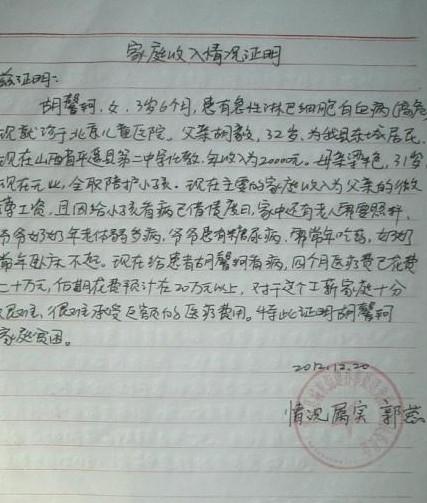 家庭收入情况证明
兹证明:
胡馨轲,女,3岁6个月,患有急性淋巴细胞白血病(高危)
现就诊于北京儿童医院。父亲胡毅,32岁,为我县东城居民,
现在山西省平遥县第二中学任教,年收入为20000元。母亲梁艳,31岁,
现在无业,全职陪护小孩。现在主要的家庭收入为父亲的微
薄工资,且因给小孩看病已借债度日,家中还有老人需要照料,
爷爷奶奶年老体弱多病,爷爷患有糖尿病,需常年吃药,奶奶
常年卧床不起。现在给患者胡馨轲看病,四个月医药费已花费
二十万元,后期花费预计在20万以上,对于这个工薪家庭十分
困难,很难承受巨额的医药费用。特此证明胡馨轲
家庭贫困。
2012.12.20
情况属实 郭